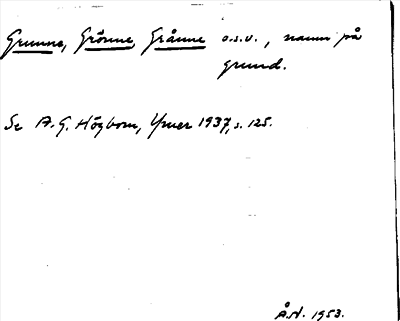 Grunne, Grönne, Grånne o.s.v., namn på
grund.
Se A.G. Högbom, Ymer 1937, s. 125.
Å.N. 1953.